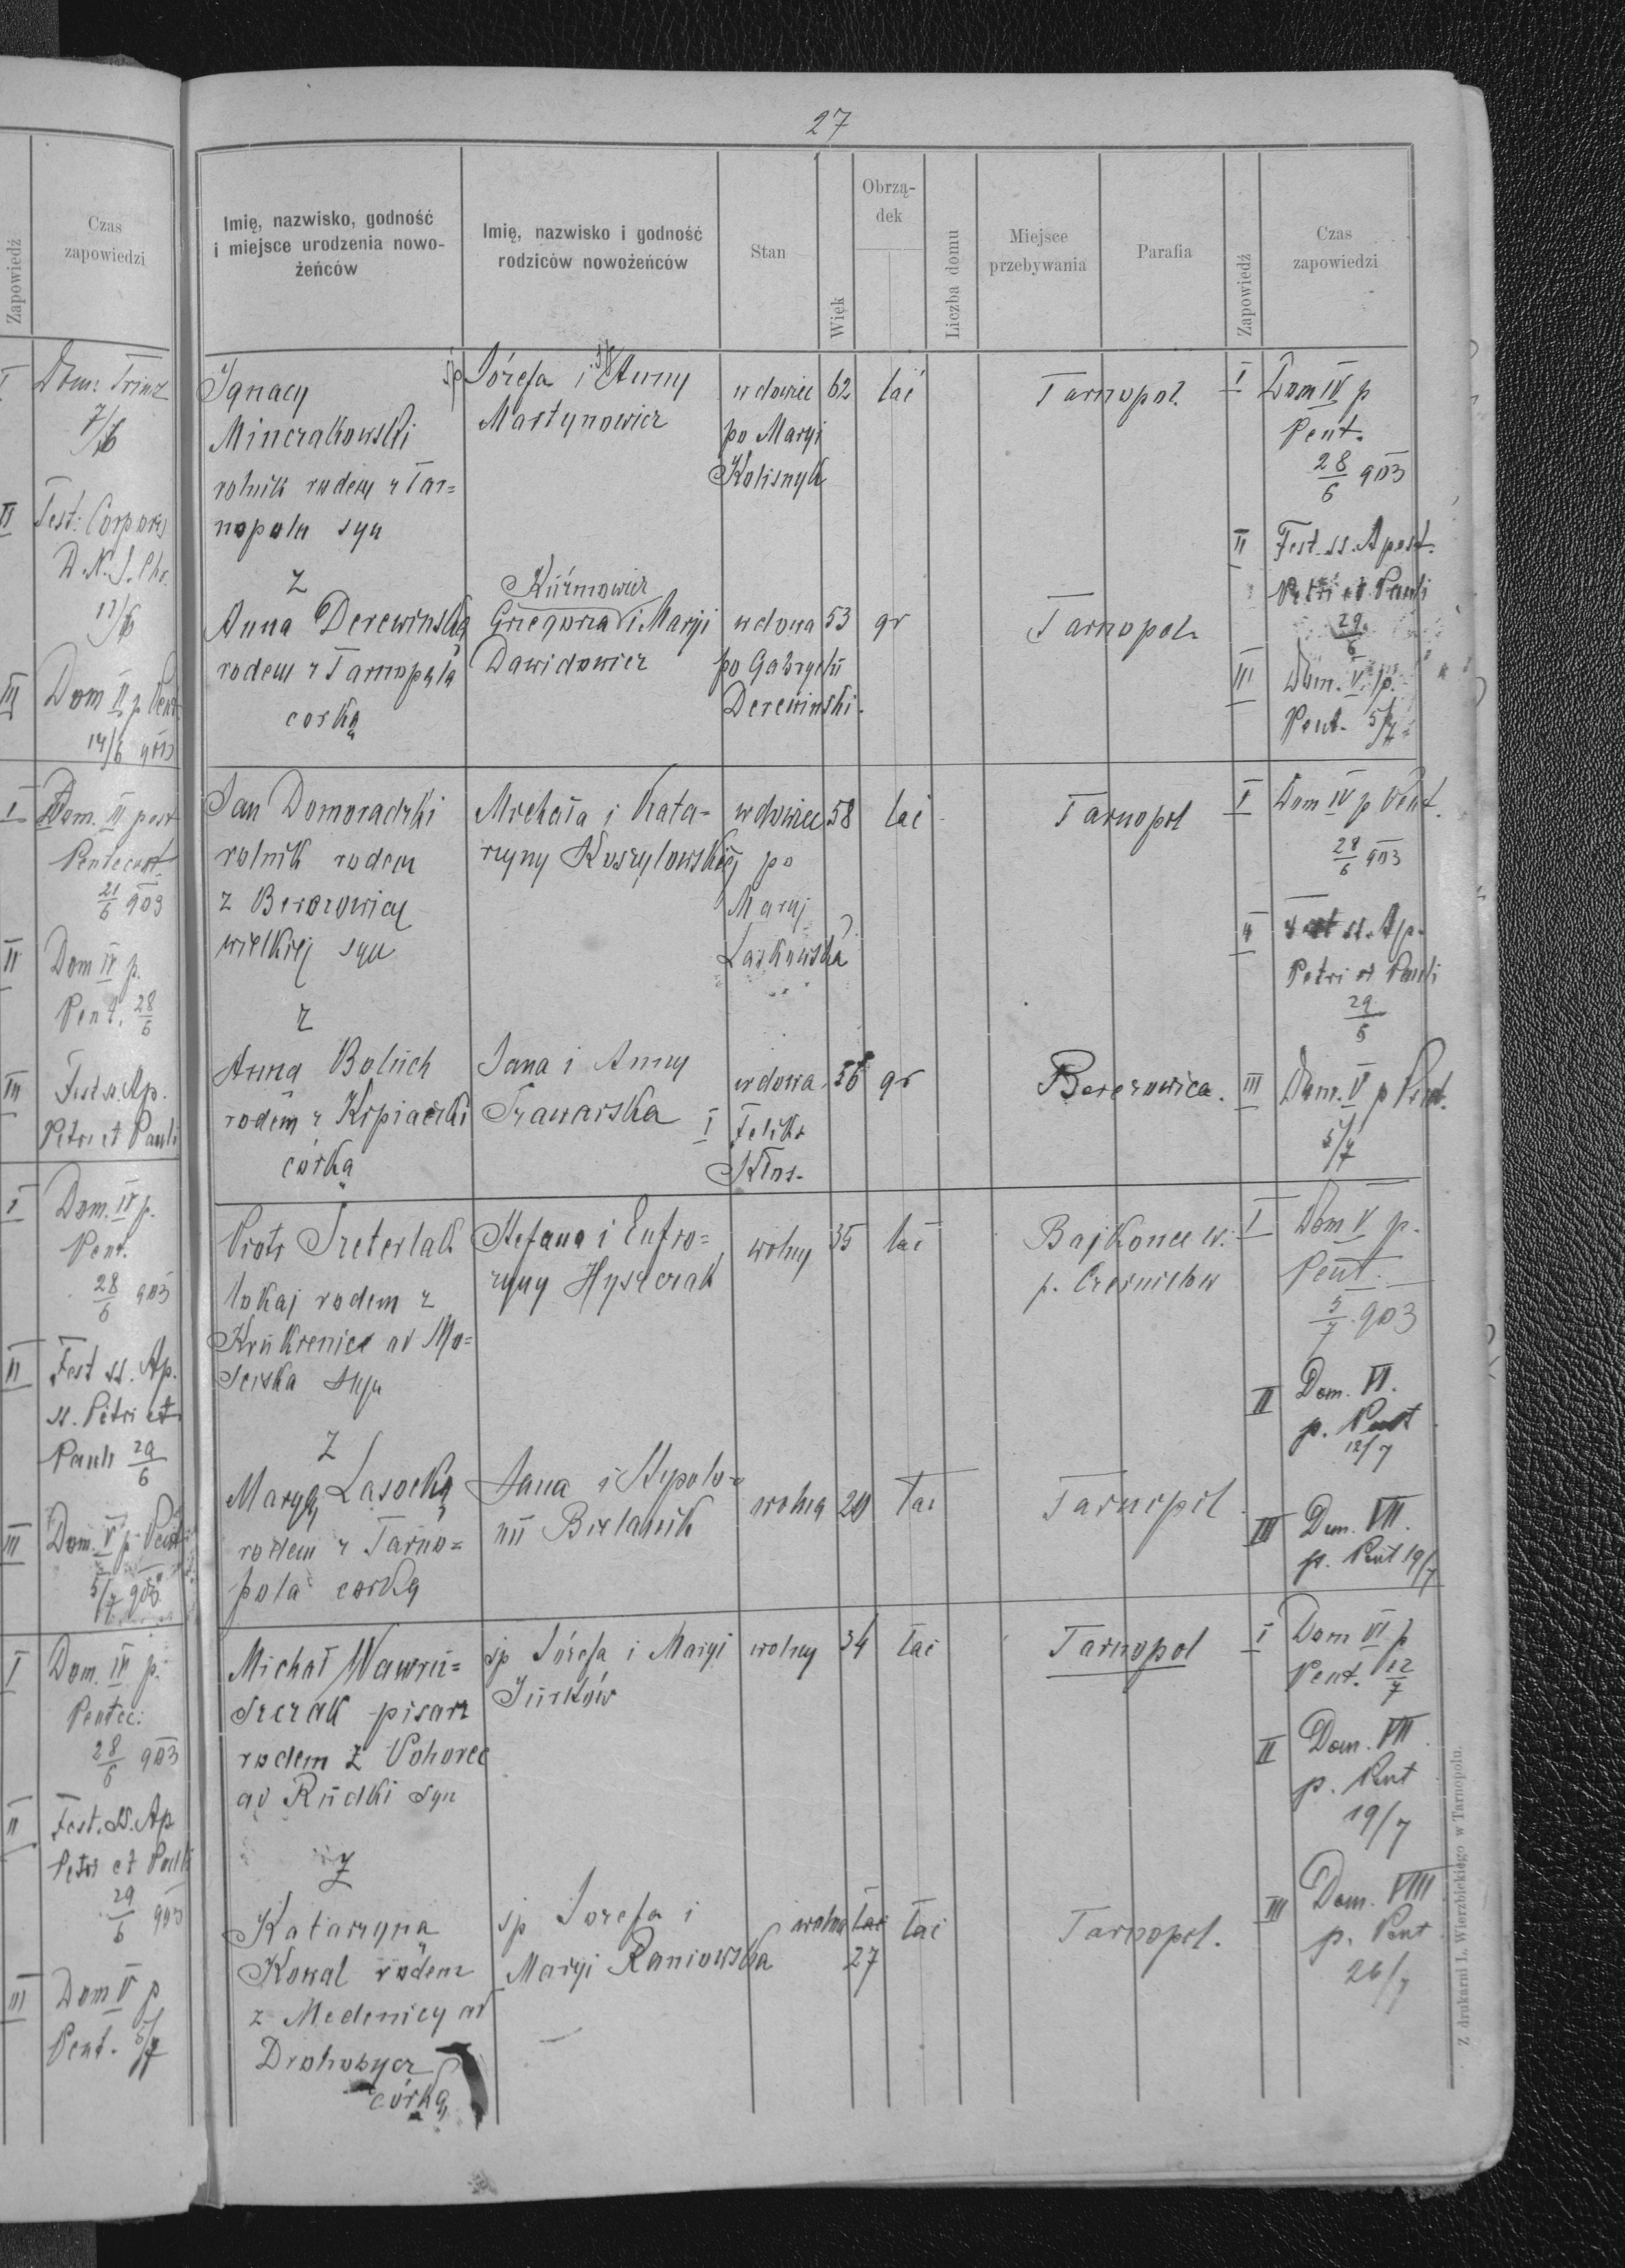 27
Zapowiedź
Czas
zapowiedzi
I
Dom. Trinit
7/6
II
Fest. Corporis
D. N. J. Chr.
11/6
III
Dom II p. Pent
14/6 903
I
Dom. III post
Pentecost
21/6 903
II
Dom IV p.
Pent. 28/6
III
Fest. ss. Ap.
Petri et Pauli
I
Dom. IV p.
Pent.
28/6 903
II
Fest ss. Ap.
ss. Petri et
Pauli 29/6
III
Dom. V p. Pent
5/7 903
I
Dom. IV p.
Pentec:
28/6 903
II
Fest. SS. Ap
Petri et Pauli
29/6 903
III
Dom V p
Pent. 5/7
Imię, nazwisko, godność
i miejsce urodzenia nowo-
żeńców
Imię, nazwisko i godność
rodziców nowożeńców
Stan
Wiek
Obrzą-
dek
Liczba domu
Miejsce
przebywania
Parafia
Zapowiedź
Czas
zapowiedzi
Ignacy
Minczakowski
rolnik rodem z Tar=
nopola syn
śp Józefa i Anny
Martynowicz
wdowiec
po Maryi
Kolisnyk
62
łać
Tarnopol
I
Dom IV p
Pent.
28/6 903
II
Fest. ss. Apost.
Petri et Pauli
29/6
III
Dom. V. p.
Pent. 5/7
z
Anna Derewinską
rodem z Tarnopola
corką
Kuźmowicz
Grzegorza i Maryi
Dawidowicz
wdowa
po Gabryelu
Derewinski.
53
gr
Tarnopol
Jan Domoradzki
rolnik rodem
z Berezowicy
wielkiej syn
Michała i Kata=
rzyny Koszylowskiej
wdowiec
po
Maryi
Laskowska
58
łać
Tarnopol
I
Dom IV p Pent.
28/6 903
II
Fest ss. Ap.
Petri et Pauli
29/6
III
Dom. V p Pent.
5/7
z
Anna Boluch
rodem z Krpiaczki
córką
Jana i Anny
Trawarska
wdowa
I Feliks
Kłos.
56
gr
Berezowica.
Piotr Szeterlak
lokaj rodem z
Krukienice ad Mo=
sciska syn
Stefana i Eufro=
zyny Hyszczak
wolny
35
łać
Bajkowce w.
p. Czernielow
I
Dom V p.
Pent.
5/7 903
II
Dom. VI.
p. Pent
12/7
III
Dom. VII.
p. Pent 19/7
z
Maryą Lasocką
rodem z Tarno=
pola corką
Jana i Hypolo=
nii Bielanik
wolna
20
łać
Tarnopol
Michał Wawru=
szczak pisarz
rodem z Pohorec
ad Rudki syn
śp Józefa i Maryi
Jurków
wolny
34
łać
Tarnopol
I
Dom VI p
Pent. 12/7
II
Dom. VII.
p. Pent
19/7
III
Dom. VIII
p. Pent
26/7
z
Katarzyną
Kowal rodem
z Medenicy ad
Drohobycz
córką
śp Jozefa i
Maryi Raniowska
wolna
łać
27
łać
Tarnopol.
Z drukarni L. Wierzbickiego w Tarnopolu.